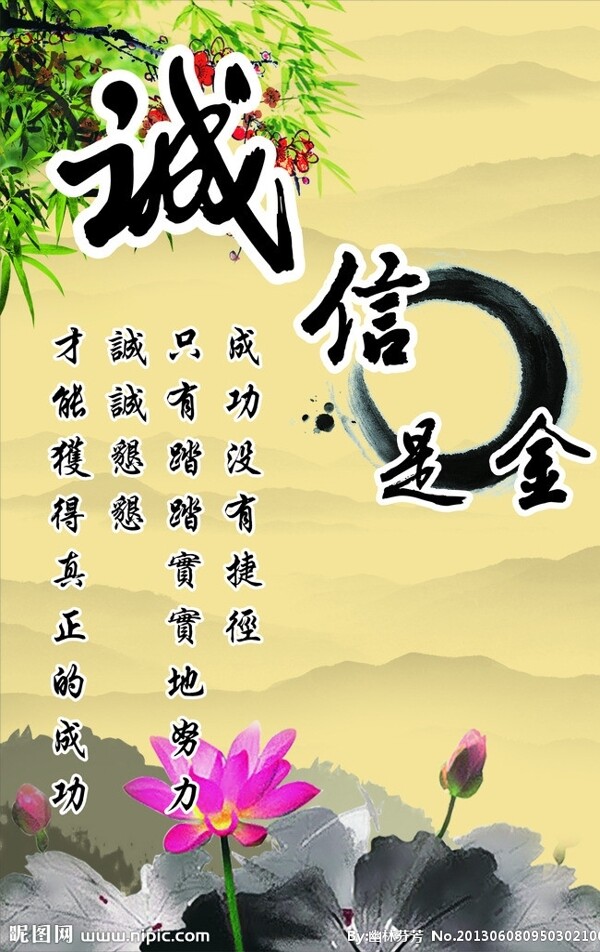 誠信是金
成功没有捷徑
只有踏踏實實地努力
誠誠懇懇
才能獲得真正的成功
昵图网 www.nipic.com
By:幽林芬芳 No.20130608095030210